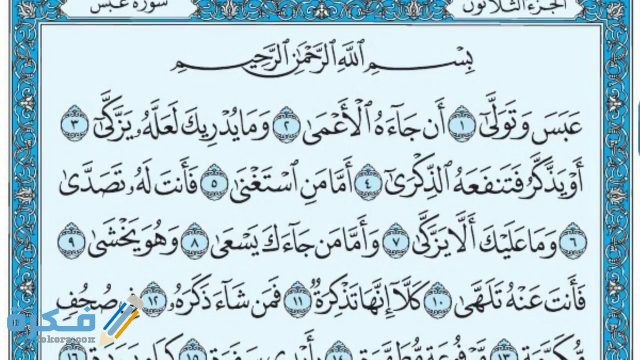 الجزء الثلاثون
سورة عبس
بِسْمِ اللَّهِ الرَّحْمَٰنِ الرَّحِيمِ
عَبَسَ وَتَوَلَّىٰٓ ١ أَن جَآءَهُ ٱلْأَعْمَىٰ ٢ وَمَا يُدْرِيكَ لَعَلَّهُۥ يَزَّكَّىٰٓ ٣
أَوْ يَذَّكَّرُ فَتَنفَعَهُ ٱلذِّكْرَىٰٓ ٤ أَمَّا مَنِ ٱسْتَغْنَىٰ ٥ فَأَنتَ لَهُۥ تَصَدَّىٰ
٦ وَمَا عَلَيْكَ أَلَّا يَزَّكَّىٰ ٧ وَأَمَّا مَن جَآءَكَ يَسْعَىٰ ٨ وَهُوَ يَخْشَىٰ ٩
فَأَنتَ عَنْهُ تَلَهَّىٰ ١٠ كَلَّآ إِنَّهَا تَذْكِرَةٌ ١١ فَمَن شَآءَ ذَكَرَهُۥ ١٢ فِى صُحُفٍ
مُّكَرَّمَةٍ ١٣ مَّرْفُوعَةٍ مُّطَهَّرَةٍۭ ١٤ بِأَيْدِى سَفَرَةٍ ١٥ كِرَامٍۭ بَرَرَةٍ ١٦
فكرة